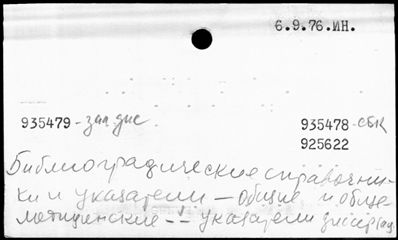 6.9.76.ИН.
935479 - зал дис.
935478 - СБК
925622
Библиографические справочни-
ки и указатели — общие и обще
медицинские -:- указатели диссертац